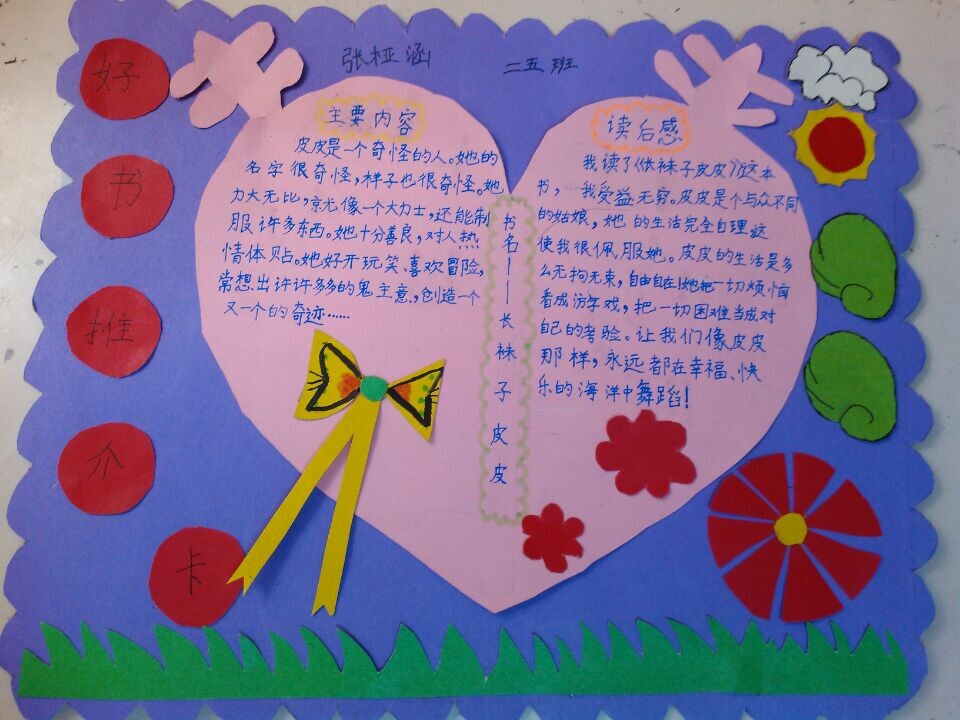 张桠涵 二五班
好
书
推
介
卡
主要内容
皮皮是一个奇怪的人。她的
名字很奇怪，样子也很奇怪。她
力大无比，就像一个大力士，还能制
服许多东西。她十分善良，对人热
情体贴。她好开玩笑、喜欢冒险，
常想出许许多多的鬼主意，创造一个
又一个的奇迹……
书名——长袜子皮皮
读后感
我读了《长袜子皮皮》这本
书，我受益无穷。皮皮是个与众不同
的姑娘，她的生活完全自理这
使我很佩服她。皮皮的生活是多
么无拘无束，自由自在！她把一切烦恼
看成游戏，把一切困难当成对
自己的考验。让我们像皮皮
那样，永远都在幸福、快
乐的海洋中舞蹈！